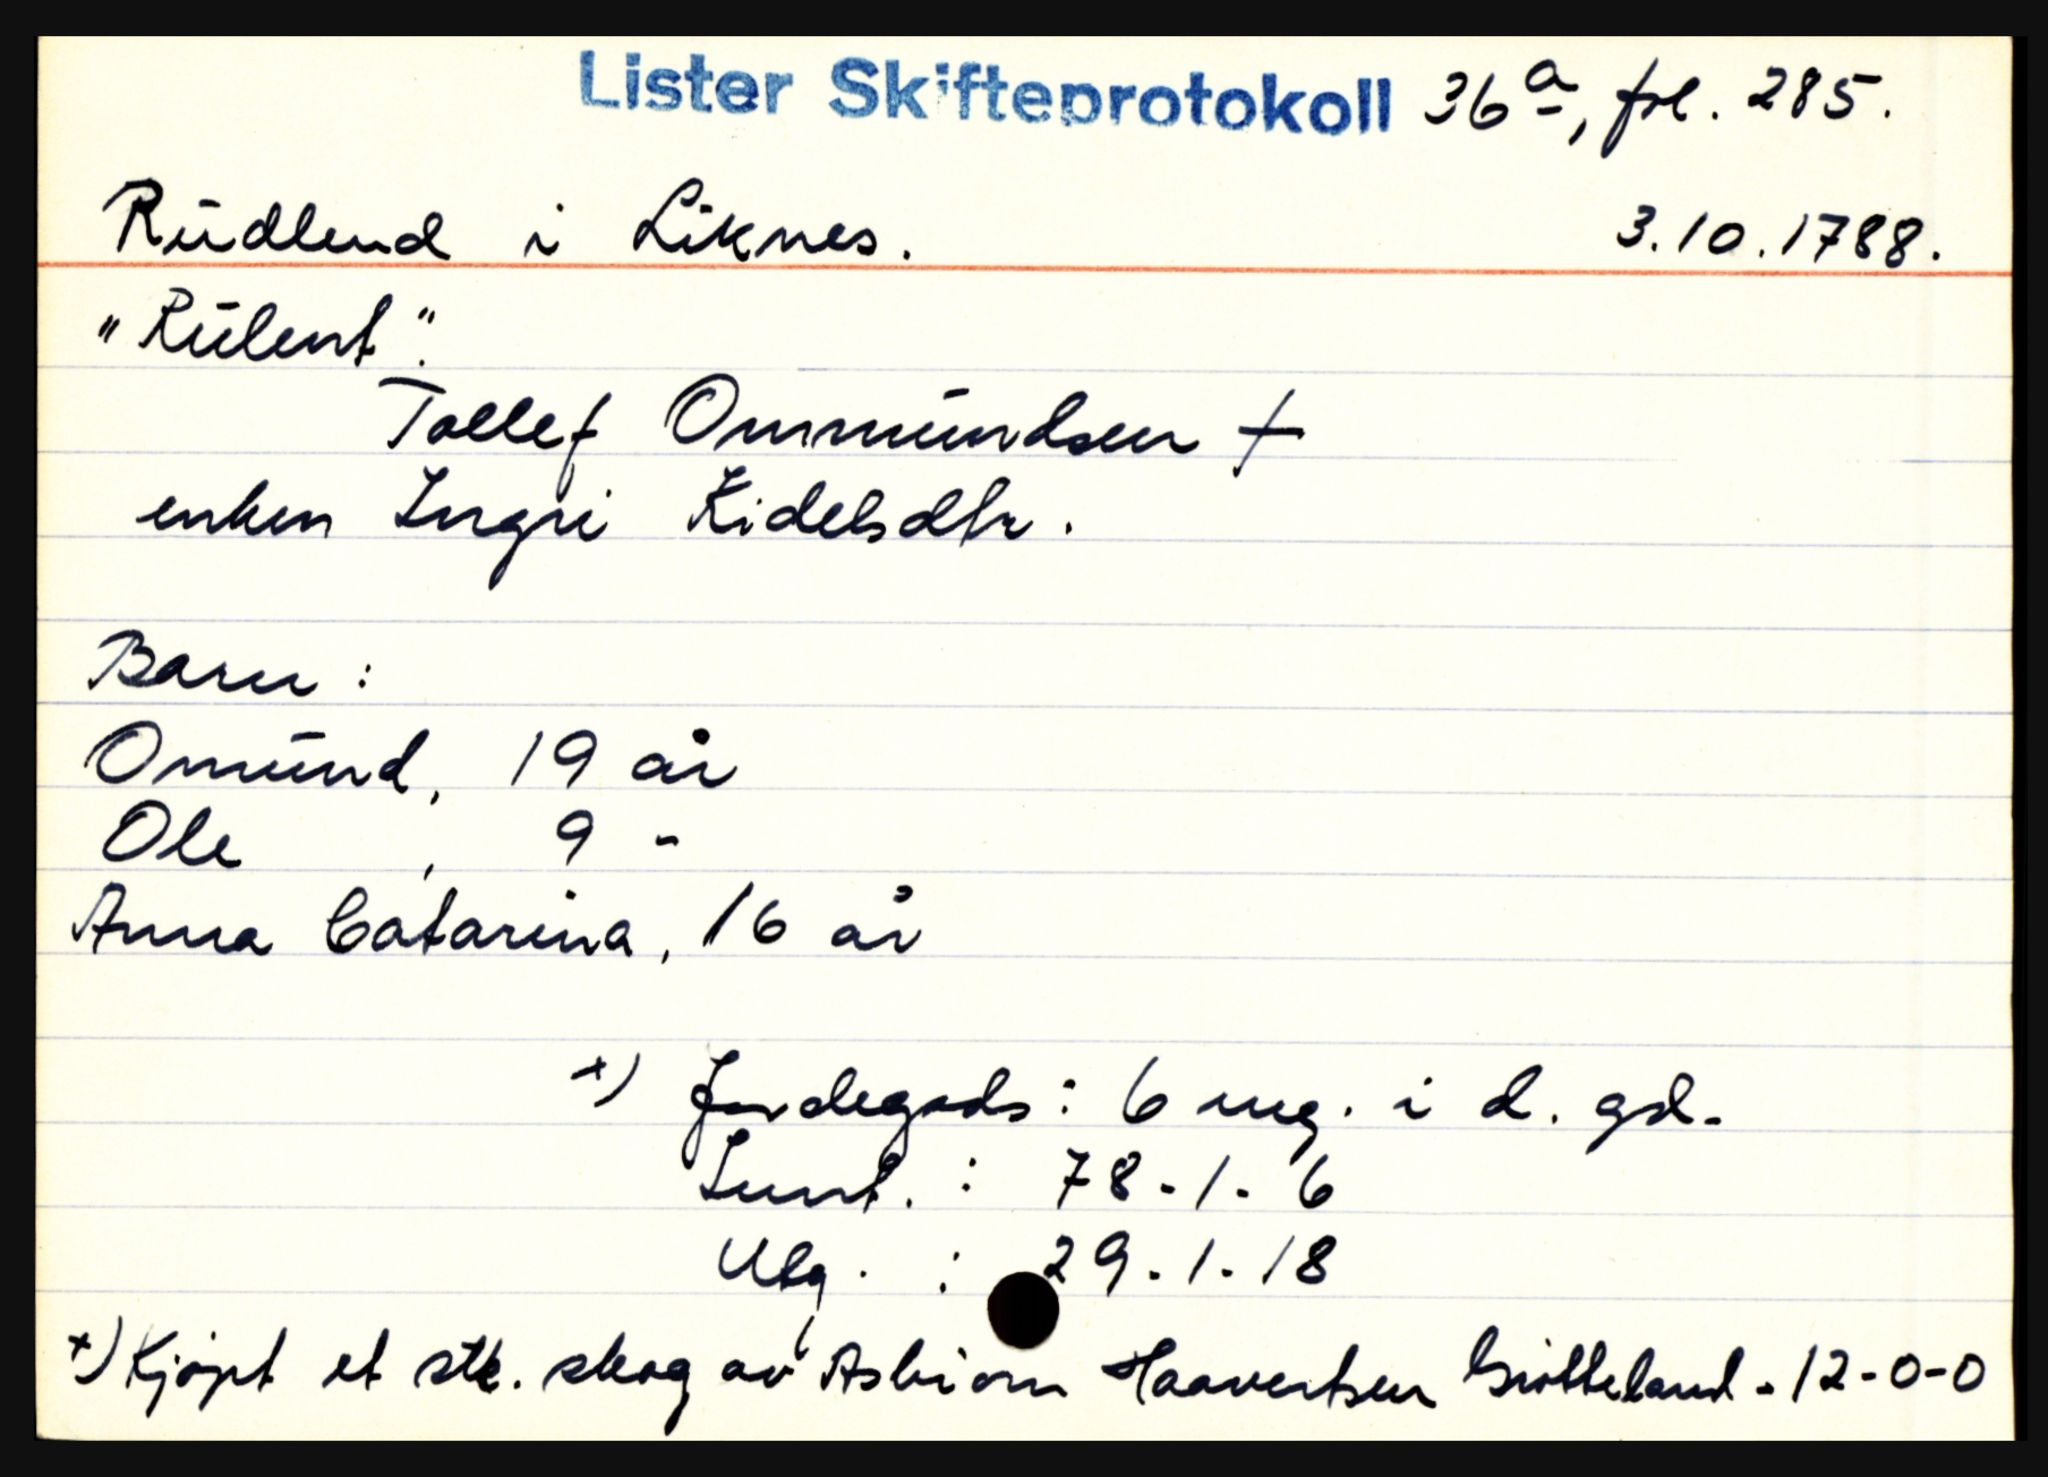 Lister Skifteprotokoll 36a, fol. 285.
Rudlend i Liknes. 3.10.1788.
"Rulent".
Tollef Ommundsen +
enken Ingri Kidelsdtr.
Barn:
Omund, 19 år
Ole , 9 -
Anna Catarina, 16 år
+) Jordegods: 6 mg. i d. gd.
Innt. : 78-1-6
Utg. : 29-1-18
+) Kjøpt et stk. skog av Asbiørn Haavertsen -12-0-0